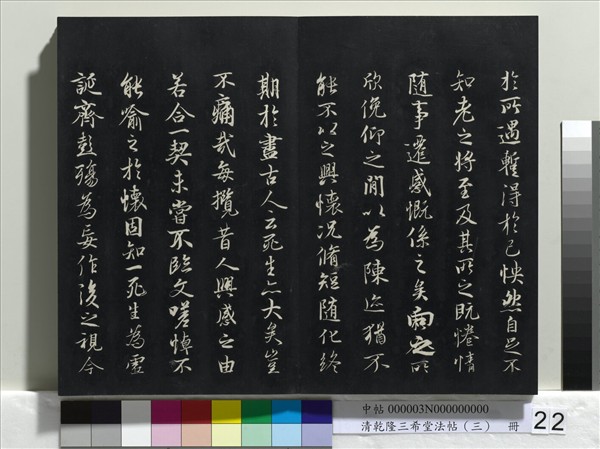 於所遇暫得於己怏然自足不
知老之將至及其所之既惓情
随事遷感慨係之矣向之所
欣俛仰之閒以為陳迹猶不
能不以之興懷況脩短随化終
期於盡古人云死生亦大矣豈
不痛哉每攬昔人興感之由
若合一契未嘗不臨文嗟悼不
能喻之於懷固知一死生為虛
誕齊彭殤為妄作後之視今
中帖 000003N000000000
清乾隆三希堂法帖（三） 冊
22